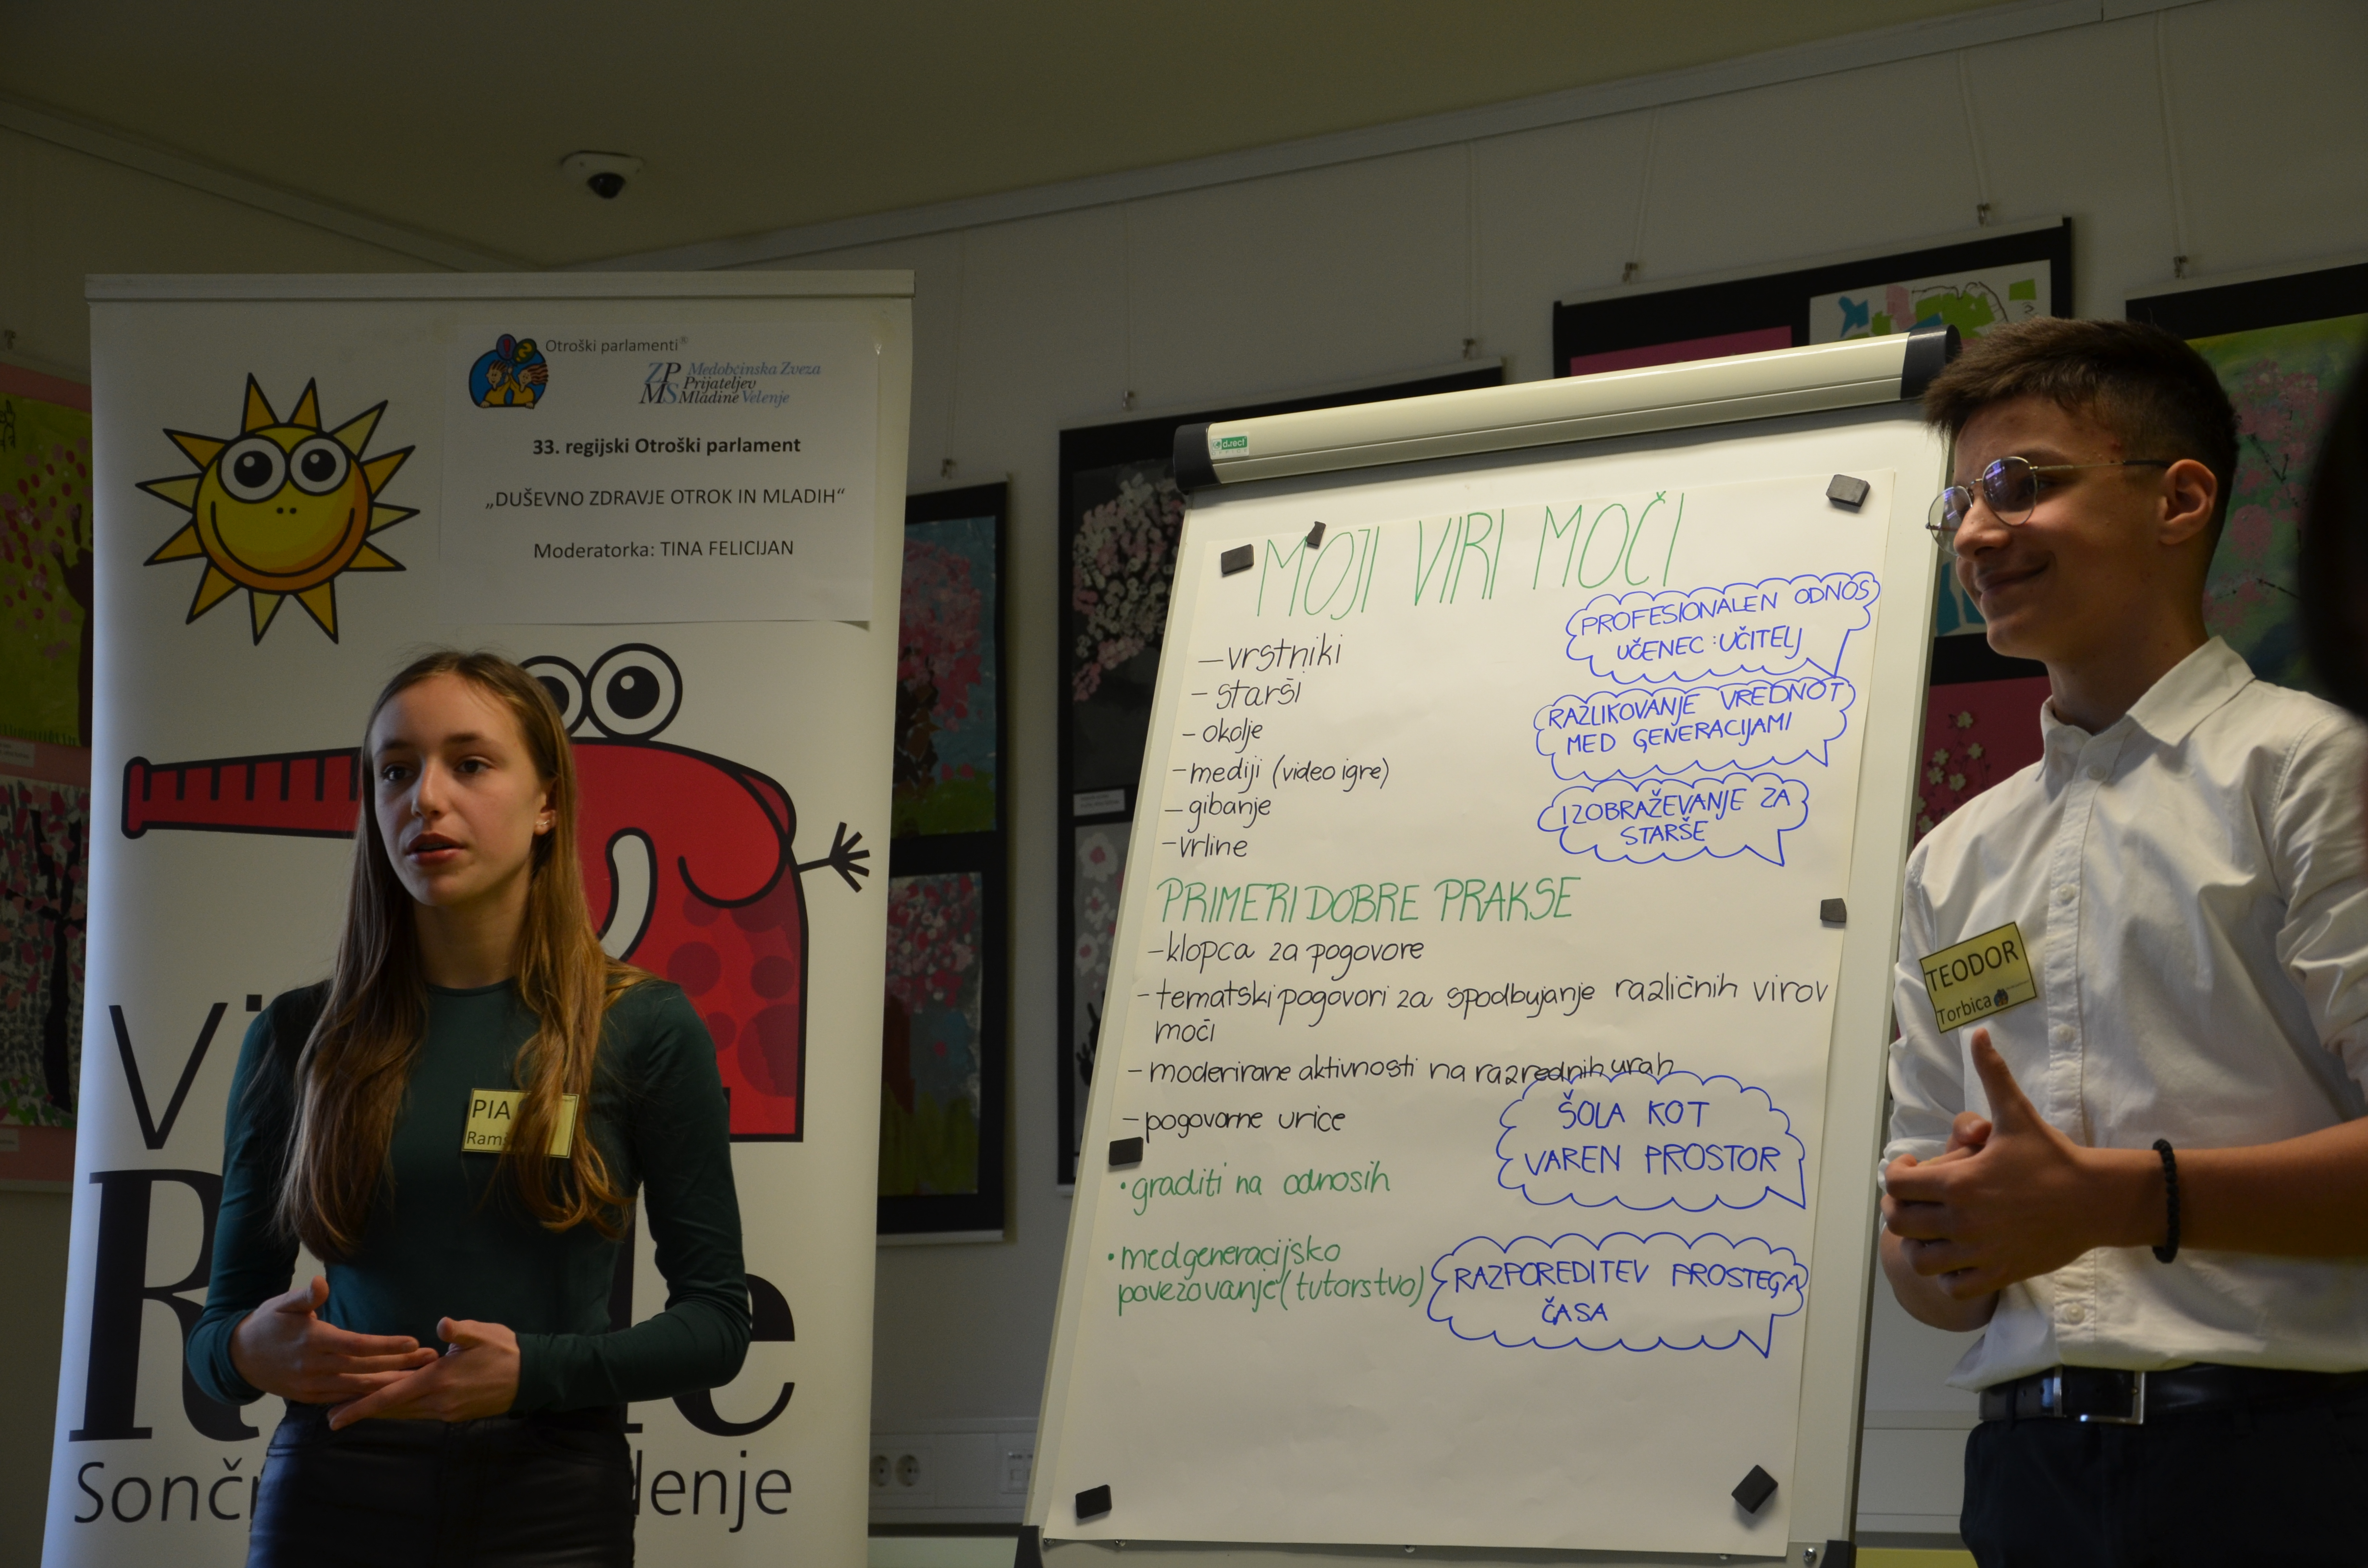 Otroški parlamenti®
ZPMS Medobčinska Zveza
Prijateljev
Mladine Velenje
33. regijski Otroški parlament
„DUŠEVNO ZDRAVJE OTROK IN MLADIH“
Moderatorka: TINA FELICIJAN
PIA
direct
MOJI VIRI MOČI
– vrstniki
– starši
– okolje
– mediji (video igre)
– gibanje
– vrline
PROFESIONALEN ODNOS
UČENEC : UČITELJ
RAZLIKOVANJE VREDNOT
MED GENERACIJAMI
IZOBRAŽEVANJE ZA
STARŠE
PRIMERI DOBRE PRAKSE
– klopca za pogovore
– tematski pogovori za spodbujanje različnih virov
moči
– moderirane aktivnosti na razrednih urah
– pogovorne urice
• graditi na odnosih
• medgeneracijsko
povezovanje (tutorstvo)
ŠOLA KOT
VAREN PROSTOR
RAZPOREDITEV PROSTEGA
ČASA
TEODOR
Torbica